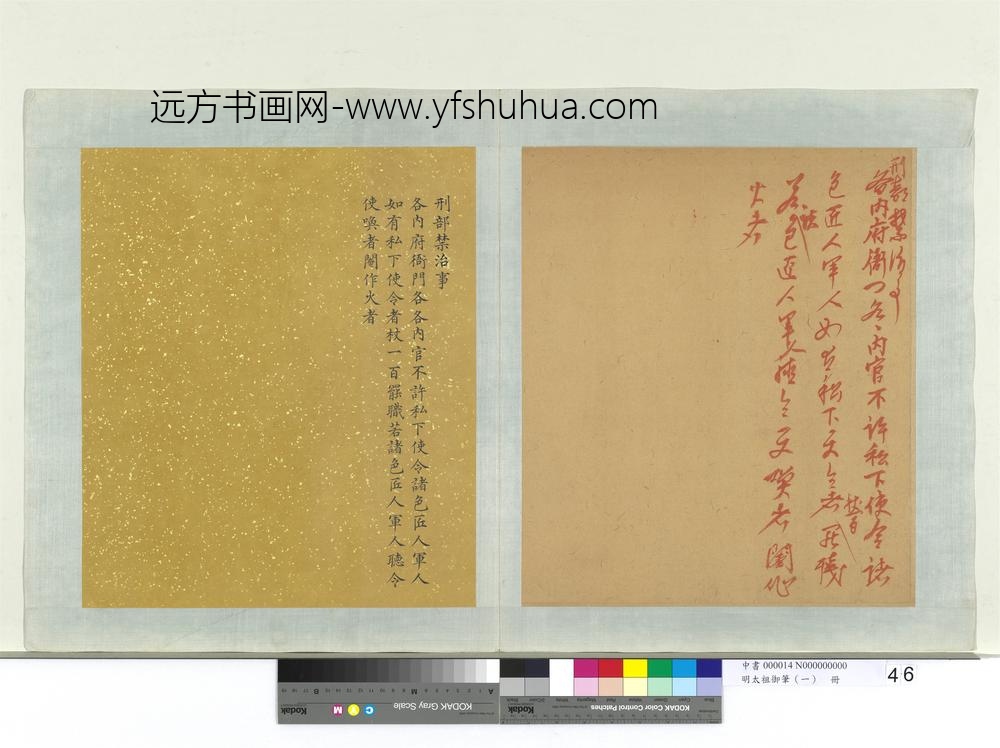 远方书画网-www.yfshuhua.com
刑部禁治事
各内府衙门各各内官不許私下使令諸
色匠人軍人如有私下使令者杖一百罷職
若諸色匠人軍人聽令使喚者閹作
火者
刑部禁治事
各內府衙門各各內官不許私下使令諸色匠人軍人
如有私下使令者杖一百罷職若諸色匠人軍人聽令
使喚者閹作火者
中書 000014 N000000000
明太祖御筆（一） 冊
46
KODAK Gray Scale
KODAK Color Control Patches
Kodak
C Y M
A
M
B